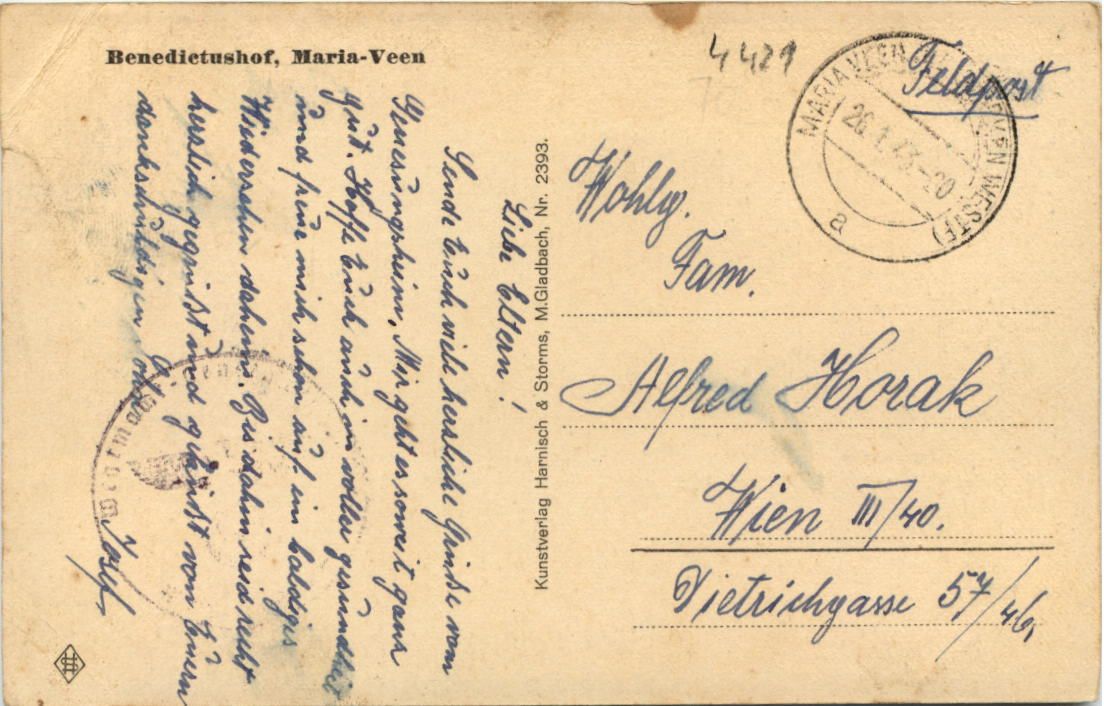 Benedictushof, Maria-Veen
4421
Feldpost
MARIA VEEN
WESTF)
26.1.43.-20
a
Libe Eltern!
Sende Euch vile hersliche Grüsse vom
Genesungsheim. Mir geht es soweit ganz
gut. Hoffe Euch auch in voller gesundheit
und freue mich schon auf ein baldiges
Wiedersehen daheim. Bis dahin seid recht
herzlich gegrüßt und geküßt von Euern
dankschuldigen
Josef.
Kunstverlag Harnisch & Storms, M.Gladbach, Nr. 2393.
Wohlg.
Fam.
Alfred Horak
Wien III/40.
Dietrichgasse 57/46,